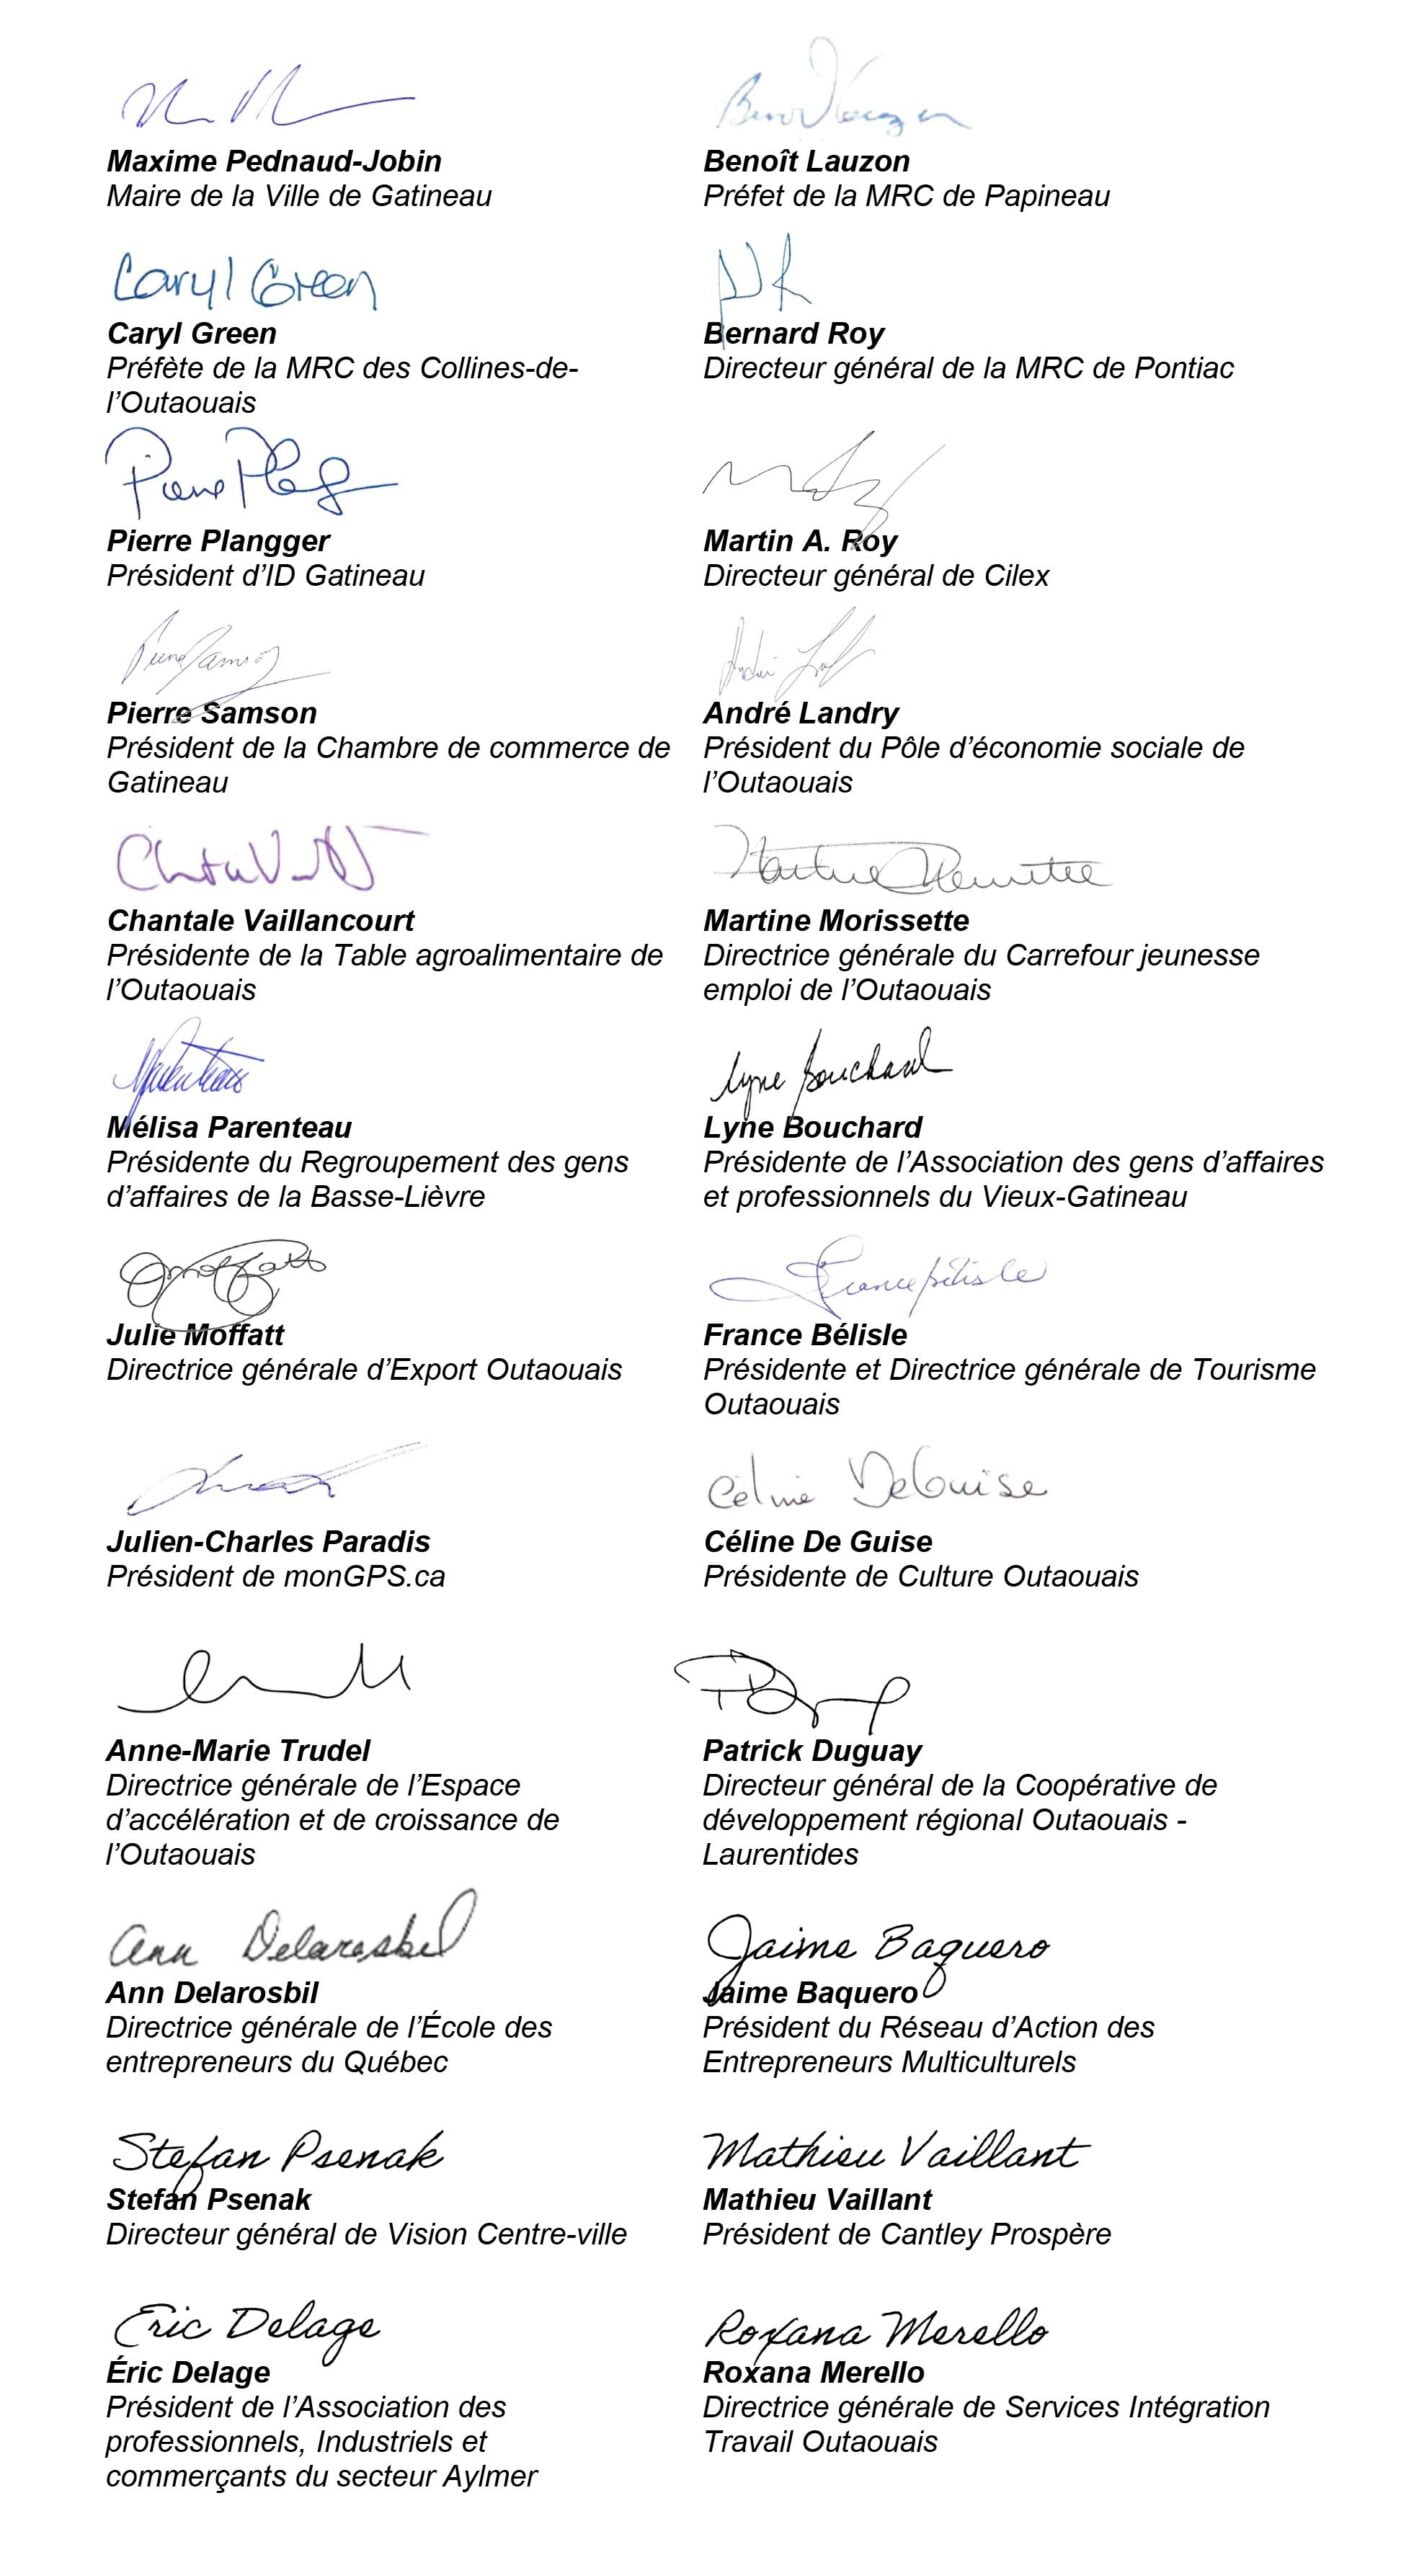 Maxime Pednaud-Jobin
Maire de la Ville de Gatineau
Benoît Lauzon
Préfet de la MRC de Papineau
Caryl Green
Caryl Green
Préfète de la MRC des Collines-de-
l’Outaouais
Bernard Roy
Directeur général de la MRC de Pontiac
Pierre Plangger
Président d’ID Gatineau
Martin A. Roy
Directeur général de Cilex
Pierre Samson
Président de la Chambre de commerce de
Gatineau
André Landry
Président du Pôle d’économie sociale de
l’Outaouais
Chantale Vaillancourt
Présidente de la Table agroalimentaire de
l’Outaouais
Martine Morissette
Directrice générale du Carrefour jeunesse
emploi de l’Outaouais
Mélisa Parenteau
Présidente du Regroupement des gens
d’affaires de la Basse-Lièvre
Lyne Bouchard
Lyne Bouchard
Présidente de l’Association des gens d’affaires
et professionnels du Vieux-Gatineau
Julie Moffatt
Directrice générale d’Export Outaouais
France Bélisle
France Bélisle
Présidente et Directrice générale de Tourisme
Outaouais
Julien-Charles Paradis
Président de monGPS.ca
Céline DeGuise
Céline De Guise
Présidente de Culture Outaouais
Anne-Marie Trudel
Directrice générale de l’Espace
d’accélération et de croissance de
l’Outaouais
Patrick Duguay
Directeur général de la Coopérative de
développement régional Outaouais -
Laurentides
Ann Delarosbil
Ann Delarosbil
Directrice générale de l’École des
entrepreneurs du Québec
Jaime Baquero
Jaime Baquero
Président du Réseau d’Action des
Entrepreneurs Multiculturels
Stefan Psenak
Stefan Psenak
Directeur général de Vision Centre-ville
Mathieu Vaillant
Mathieu Vaillant
Président de Cantley Prospère
Éric Delage
Éric Delage
Président de l’Association des
professionnels, Industriels et
commerçants du secteur Aylmer
Roxana Merello
Roxana Merello
Directrice générale de Services Intégration
Travail Outaouais